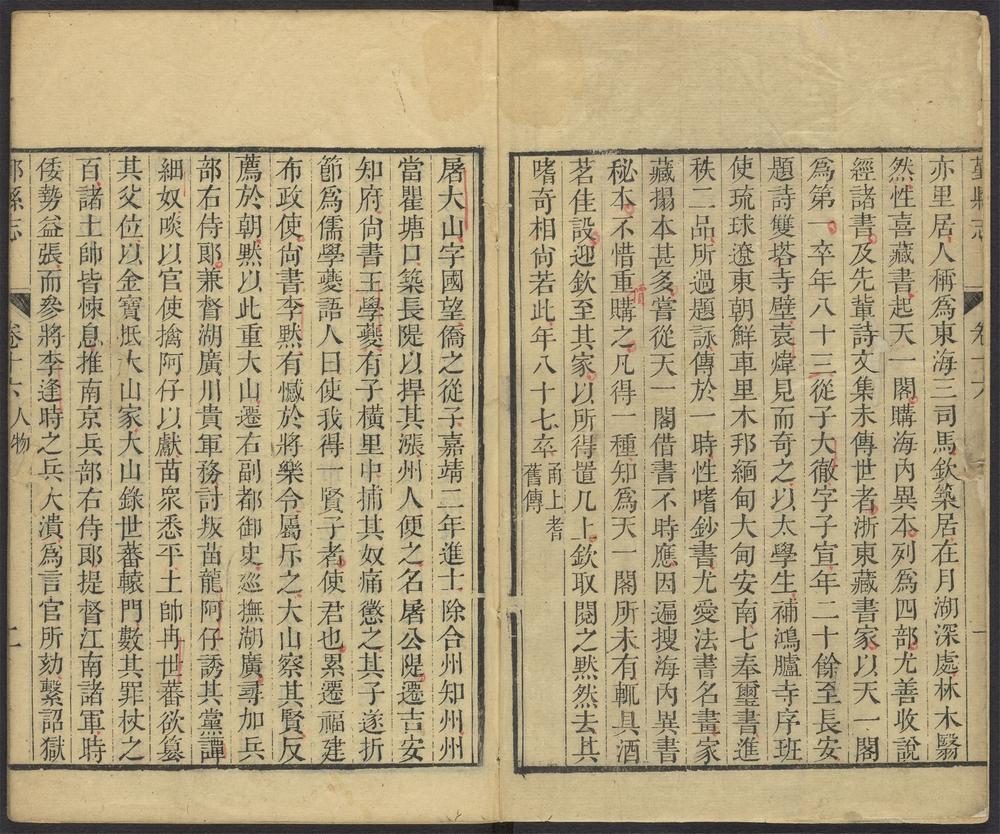 鄞縣志
卷十六
一
亦里居人稱為東海三司馬欽築居在月湖深處林木翳
然性喜藏書起天一閣購海內異本列為四部尤善收說
經諸書及先輩詩文集未傳世者浙東藏書家以天一閣
為第一卒年八十三從子大徹字子宣年二十餘至長安
題詩雙塔寺壁袁煒見而奇之以太學生補鴻臚寺序班
使琉球遼東朝鮮車里木邦緬甸大甸安南七奉璽書進
秩二品所過題詠傳於一時性嗜鈔書尤愛法書名畫家
藏搨本甚多嘗從天一閣借書不時應因遍搜海內異書
秘本不惜重購之凡得一種知為天一閣所未有輒具酒
價
茗佳設迎欽至其家以所得置几上欽取閱之默然去其
嗜奇相尚若此年八十七卒
甬上耆
舊傳
屠大山字國望僑之從子嘉靖二年進士除合州知州州
當瞿塘口築長隄以捍其漲州人便之名屠公隄遷吉安
知府尚書王學夔有子橫里中捕其奴痛懲之其子遂折
節為儒學夔語人曰使我得一賢子者使君也累遷福建
布政使尚書李默有憾於將樂令屬斥之大山察其賢反
薦於朝默以此重大山遷右副都御史巡撫湖廣尋加兵
部右侍郎兼督湖廣川貴軍務討叛苗龍阿仔誘其黨譚
細奴啖以官使擒阿仔以獻苗眾悉平土帥冉世蕃欲簒
其父位以金寶抵大山家大山錄世蕃轅門數其罪杖之
百諸土帥皆悚息推南京兵部右侍郎提督江南諸軍時
倭勢益張而參將李逢時之兵大潰為言官所劾繫詔獄
鄞縣志
卷十六 人物
二